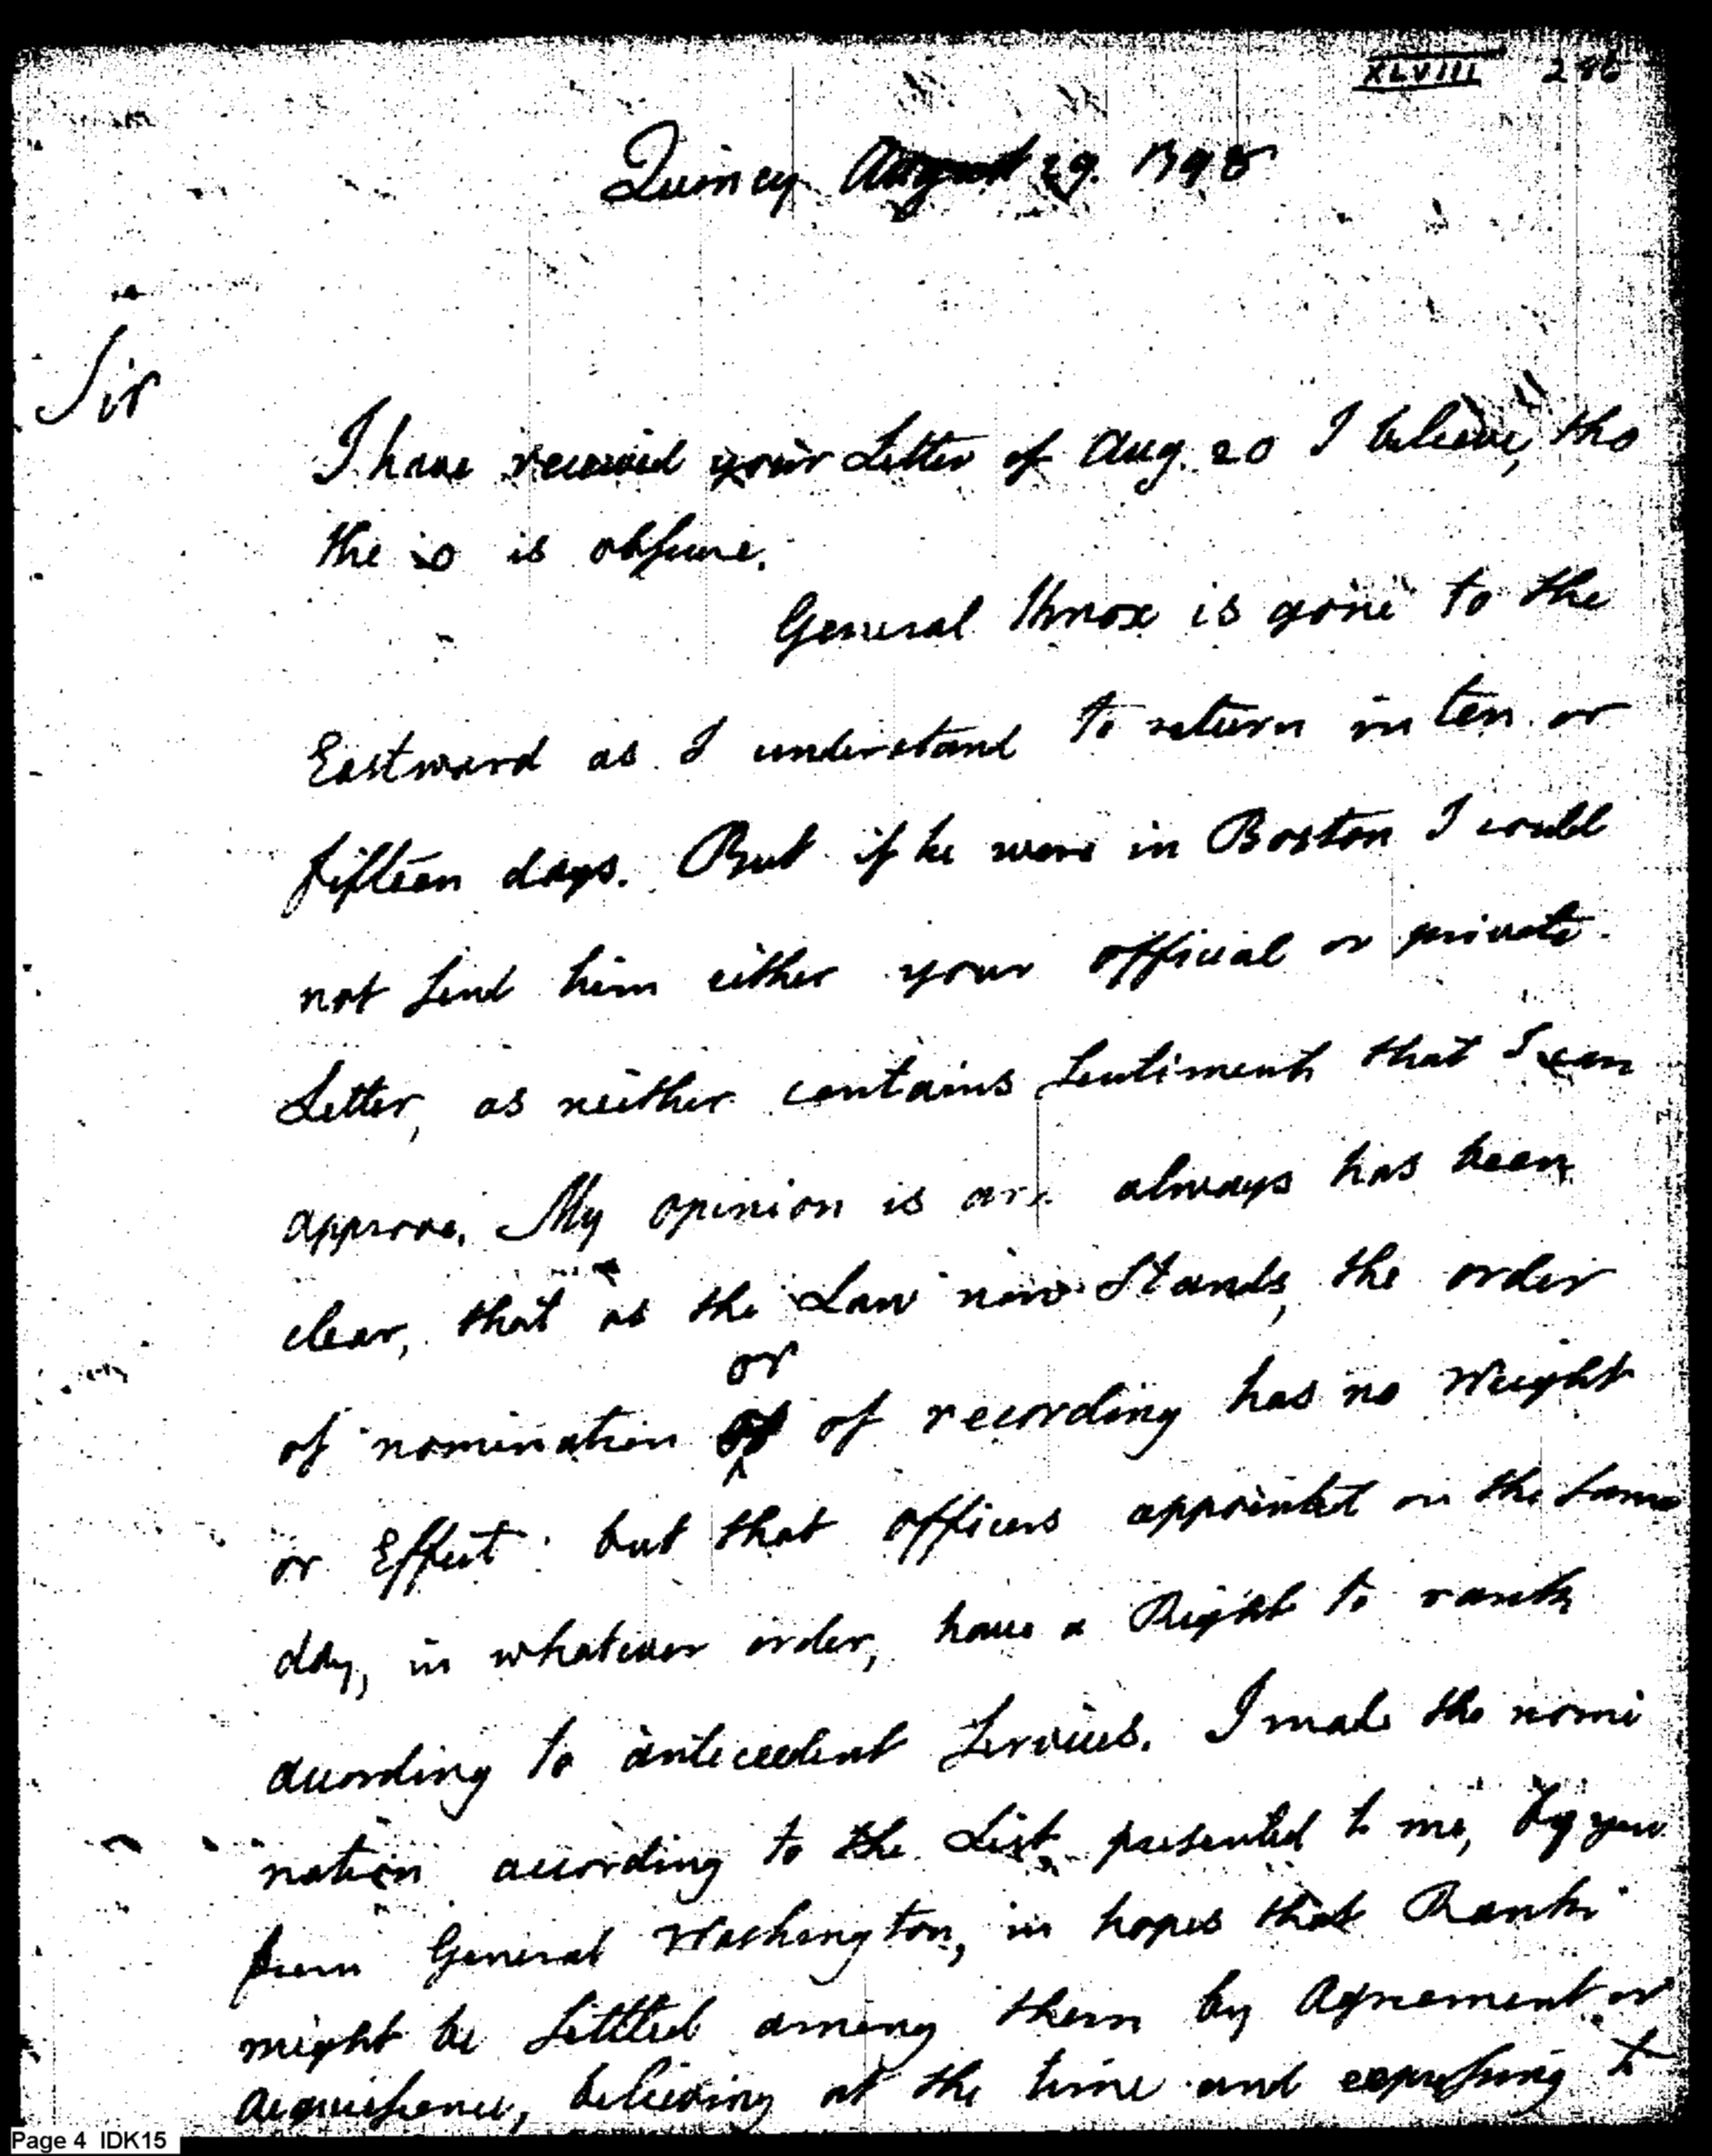 XLVIII 286
Quincy August 29. 1798
Sir
I have received your Letter of Aug. 20 I believe, tho
the 20 is obscure.
General Knox is gone to the
Eastward as I understand to return in ten or
fifteen days. But if he were in Boston I could
not Send him either your official or private
Letter, as neither contains Sentiments that I can
approve. My opinion is and always has been
clear, that as the Law now Stands, the order
or
of nomination of recording has no Weight
or Effect: but that officers appointed on the Same
day, in whatever order, have a Right to rank
according to antecedent Services. I made the nomi
nation according to the List presented to me, by you
from General Washington, in hopes that Rank
might be Settled among them by Agreement or
acquiescence, believing at the time and expressing to
Page 4 IDK15